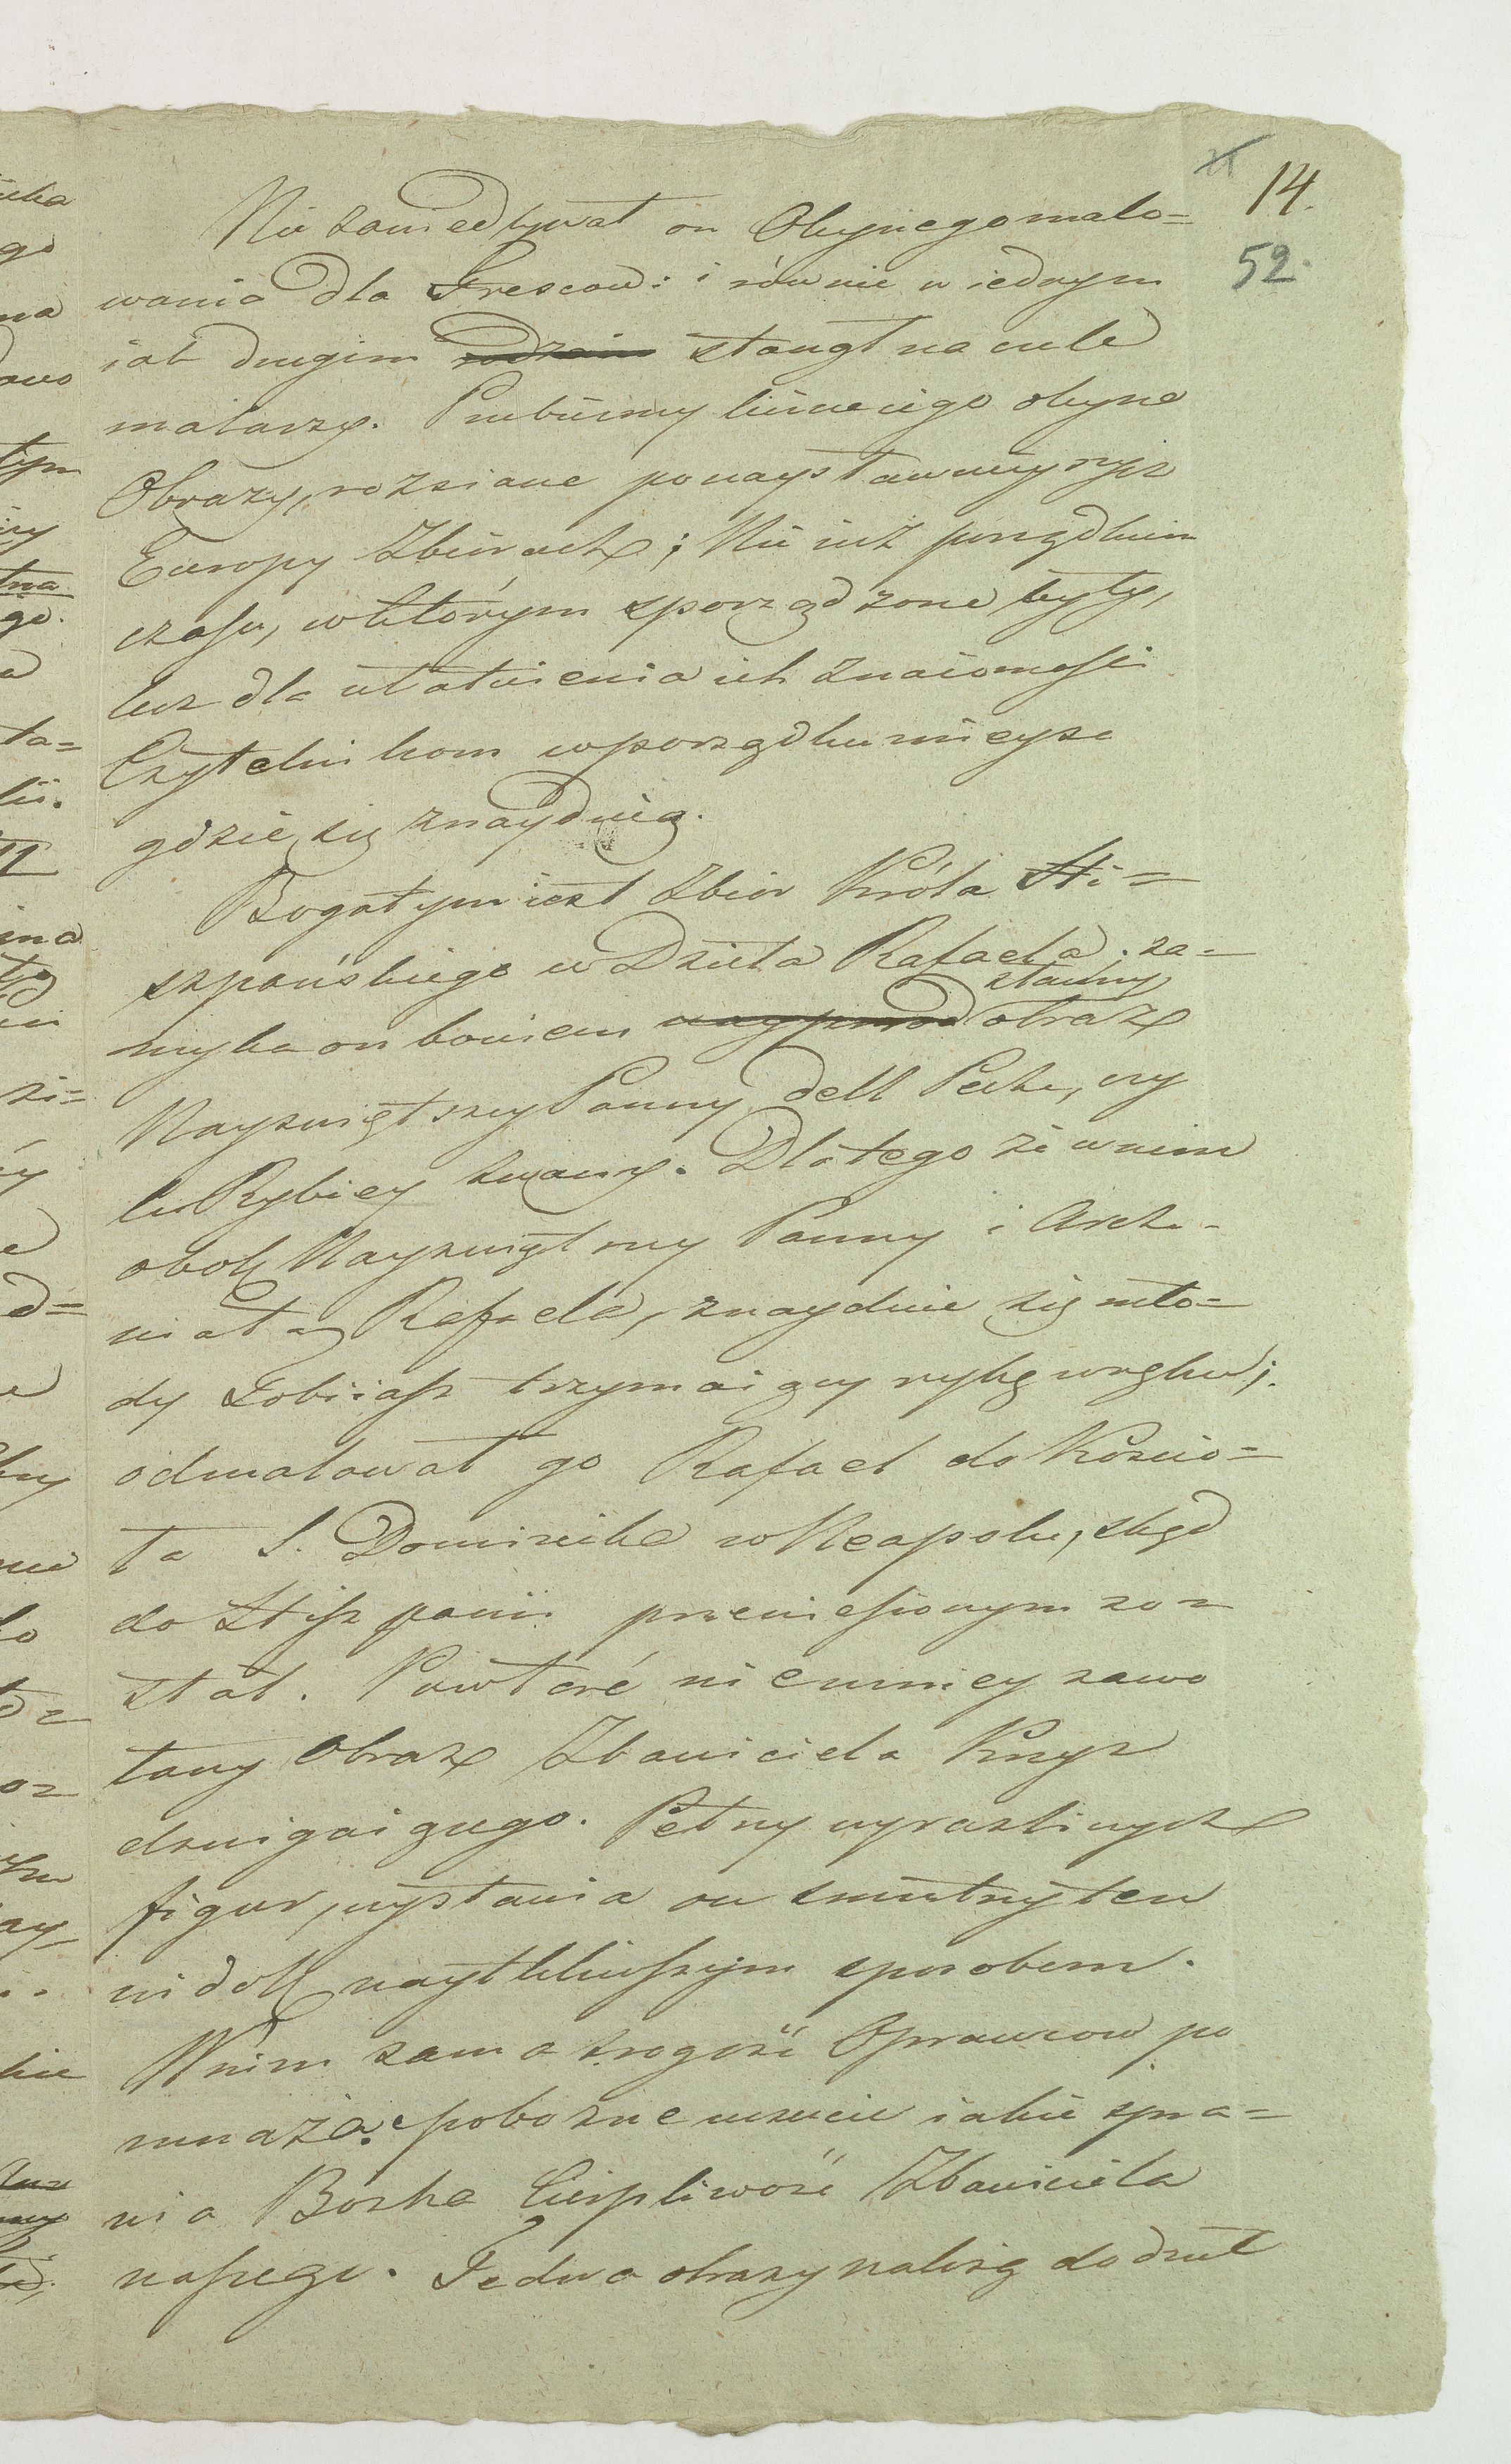 14.
52.
Nie zaniedbywał on Oleynego malo=
wania dla Frescow: i równie w iednym
iak drugim rodzaiu stanął na czele
malarzy. Przebieżmy licznie iego oleyne
Obrazy, rozsiane po naysławnieyszych
Europy Zbiorach; Nie iuż porządkiem
czasu, w którym sporządzone były,
lecz dla ułatwienia ich znaiomości
Czytelnikom w porządku mieysc
gdzie się znayduią.
Bogatym iest zbior Króla Hi=
szpańskiego w Dzieła Rafaela; za=
sławny
myka on bowiem obraz
Nayświętszey Panny dell Peche, czy
li Rybiey zwany. Dlatego że w nim
obok Nayświętszey Panny i Archa=
nioła Rafaela, znayduie się mło=
dy Tobiiasz trzymaiący rybę w ręku;
odmalował go Rafael do Kościo=
ła S. Dominika w Neapolu, skąd
do Hiszpanii przeniesionym zo=
stał. Powtóre niemniey zawo
łany Obraz Zbawiciela Krzyż
dzwigaiącego. Pełny wyrazliwych
figur, wystawia on smutny ten
widok naytkliwszym sposobem.
W nim sama srogość Oprawcow po
mnaża pobożne uczucie iakie spra=
wia Boska Cierpliwość Zbawiciela
naszego. Te dwa obrazy należą do dzieł